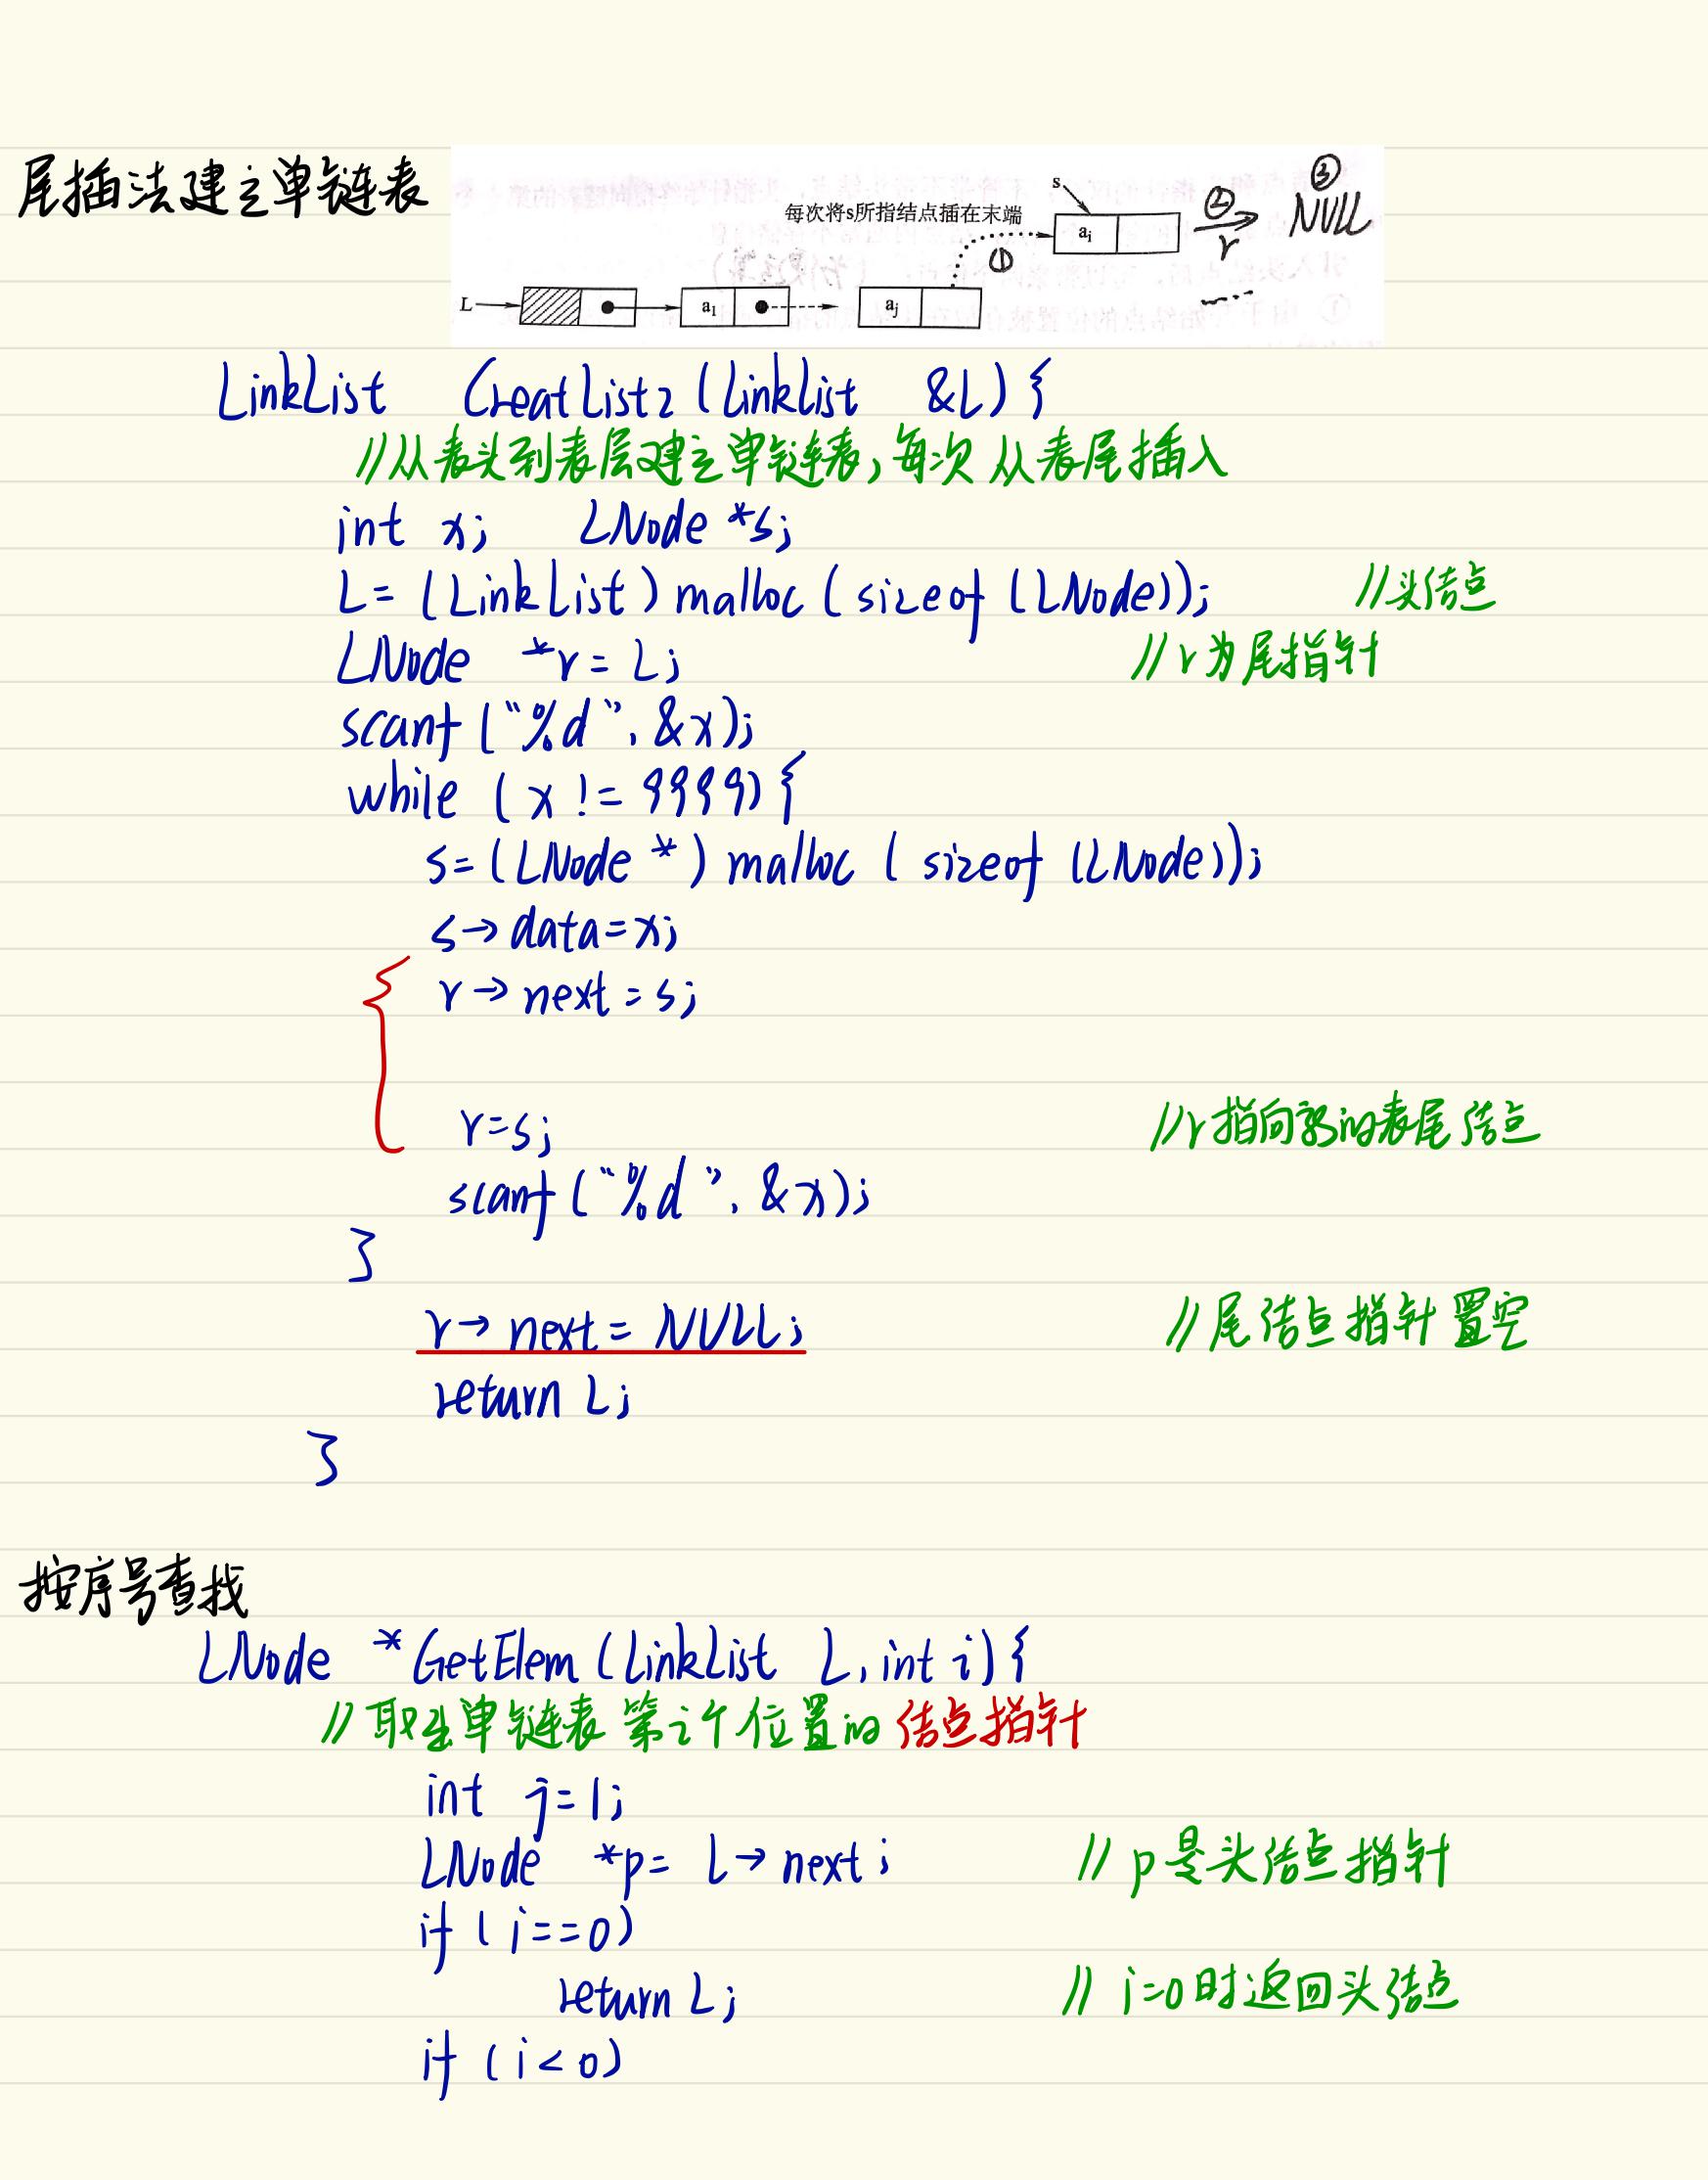 尾插法建立单链表
每次将s所指结点插在末端
s
a_i
② r
③ NULL
①
L
a_1
a_j
LinkList CreatList2 (LinkList &L) {
//从表头到表尾建立单链表,每次从表尾插入
int x; LNode *s;
L = (LinkList) malloc (sizeof (LNode)); //头结点
LNode *r = L; //r为尾指针
scanf ("%d", &x);
while (x != 9999) {
s = (LNode *) malloc (sizeof (LNode));
s → data = x;
r → next = s;
r = s; //r指向新的表尾结点
scanf ("%d", &x);
}
r → next = NULL; //尾结点指针置空
return L;
}
按序号查找
LNode *GetElem (LinkList L, int i) {
//取出单链表第i个位置的结点指针
int j = 1;
LNode *p = L → next; //p是头结点指针
if (i == 0)
return L; //i=0时返回头结点
if (i < 0)